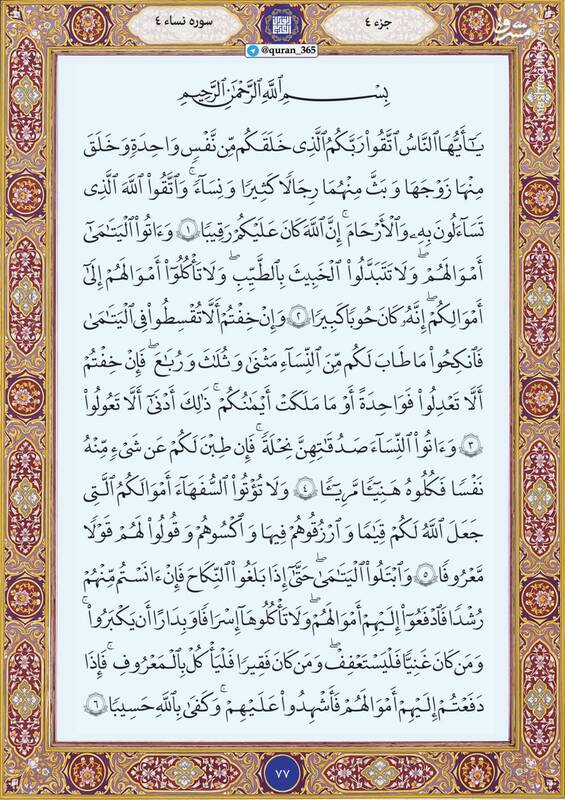 جزء ٤
سوره نساء ٤
مشرق
@quran_365
بِسْمِ ٱللَّهِ ٱلرَّحْمَٰنِ ٱلرَّحِيمِ
يَـٰٓأَيُّهَا ٱلنَّاسُ ٱتَّقُوا۟ رَبَّكُمُ ٱلَّذِى خَلَقَكُم مِّن نَّفْسٍ وَٰحِدَةٍ وَخَلَقَ
مِنْهَا زَوْجَهَا وَبَثَّ مِنْهُمَا رِجَالًا كَثِيرًا وَنِسَآءً ۚ وَٱتَّقُوا۟ ٱللَّهَ ٱلَّذِى
تَسَآءَلُونَ بِهِۦ وَٱلْأَرْحَامَ ۚ إِنَّ ٱللَّهَ كَانَ عَلَيْكُمْ رَقِيبًا ١ وَءَاتُوا۟ ٱلْيَتَـٰمَىٰٓ
أَمْوَٰلَهُمْ ۖ وَلَا تَتَبَدَّلُوا۟ ٱلْخَبِيثَ بِٱلطَّيِّبِ ۖ وَلَا تَأْكُلُوٓا۟ أَمْوَٰلَهُمْ إِلَىٰٓ
أَمْوَٰلِكُمْ ۚ إِنَّهُۥ كَانَ حُوبًا كَبِيرًا ٢ وَإِنْ خِفْتُمْ أَلَّا تُقْسِطُوا۟ فِى ٱلْيَتَـٰمَىٰ
فَٱنكِحُوا۟ مَا طَابَ لَكُم مِّنَ ٱلنِّسَآءِ مَثْنَىٰ وَثُلَـٰثَ وَرُبَـٰعَ ۖ فَإِنْ خِفْتُمْ
أَلَّا تَعْدِلُوا۟ فَوَٰحِدَةً أَوْ مَا مَلَكَتْ أَيْمَـٰنُكُمْ ۚ ذَٰلِكَ أَدْنَىٰٓ أَلَّا تَعُولُوا۟
٣ وَءَاتُوا۟ ٱلنِّسَآءَ صَدُقَـٰتِهِنَّ نِحْلَةً ۚ فَإِن طِبْنَ لَكُمْ عَن شَىْءٍ مِّنْهُ
نَفْسًا فَكُلُوهُ هَنِيٓـًٔا مَّرِيٓـًٔا ٤ وَلَا تُؤْتُوا۟ ٱلسُّفَهَآءَ أَمْوَٰلَكُمُ ٱلَّتِى
جَعَلَ ٱللَّهُ لَكُمْ قِيَـٰمًا وَٱرْزُقُوهُمْ فِيهَا وَٱكْسُوهُمْ وَقُولُوا۟ لَهُمْ قَوْلًا
مَّعْرُوفًا ٥ وَٱبْتَلُوا۟ ٱلْيَتَـٰمَىٰ حَتَّىٰٓ إِذَا بَلَغُوا۟ ٱلنِّكَاحَ فَإِنْ ءَانَسْتُم مِّنْهُمْ
رُشْدًا فَٱدْفَعُوٓا۟ إِلَيْهِمْ أَمْوَٰلَهُمْ ۖ وَلَا تَأْكُلُوهَآ إِسْرَافًا وَبِدَارًا أَن يَكْبَرُوا۟ ۚ
وَمَن كَانَ غَنِيًّا فَلْيَسْتَعْفِفْ ۖ وَمَن كَانَ فَقِيرًا فَلْيَأْكُلْ بِٱلْمَعْرُوفِ ۚ فَإِذَا
دَفَعْتُمْ إِلَيْهِمْ أَمْوَٰلَهُمْ فَأَشْهِدُوا۟ عَلَيْهِمْ ۚ وَكَفَىٰ بِٱللَّهِ حَسِيبًا ٦
٧٧